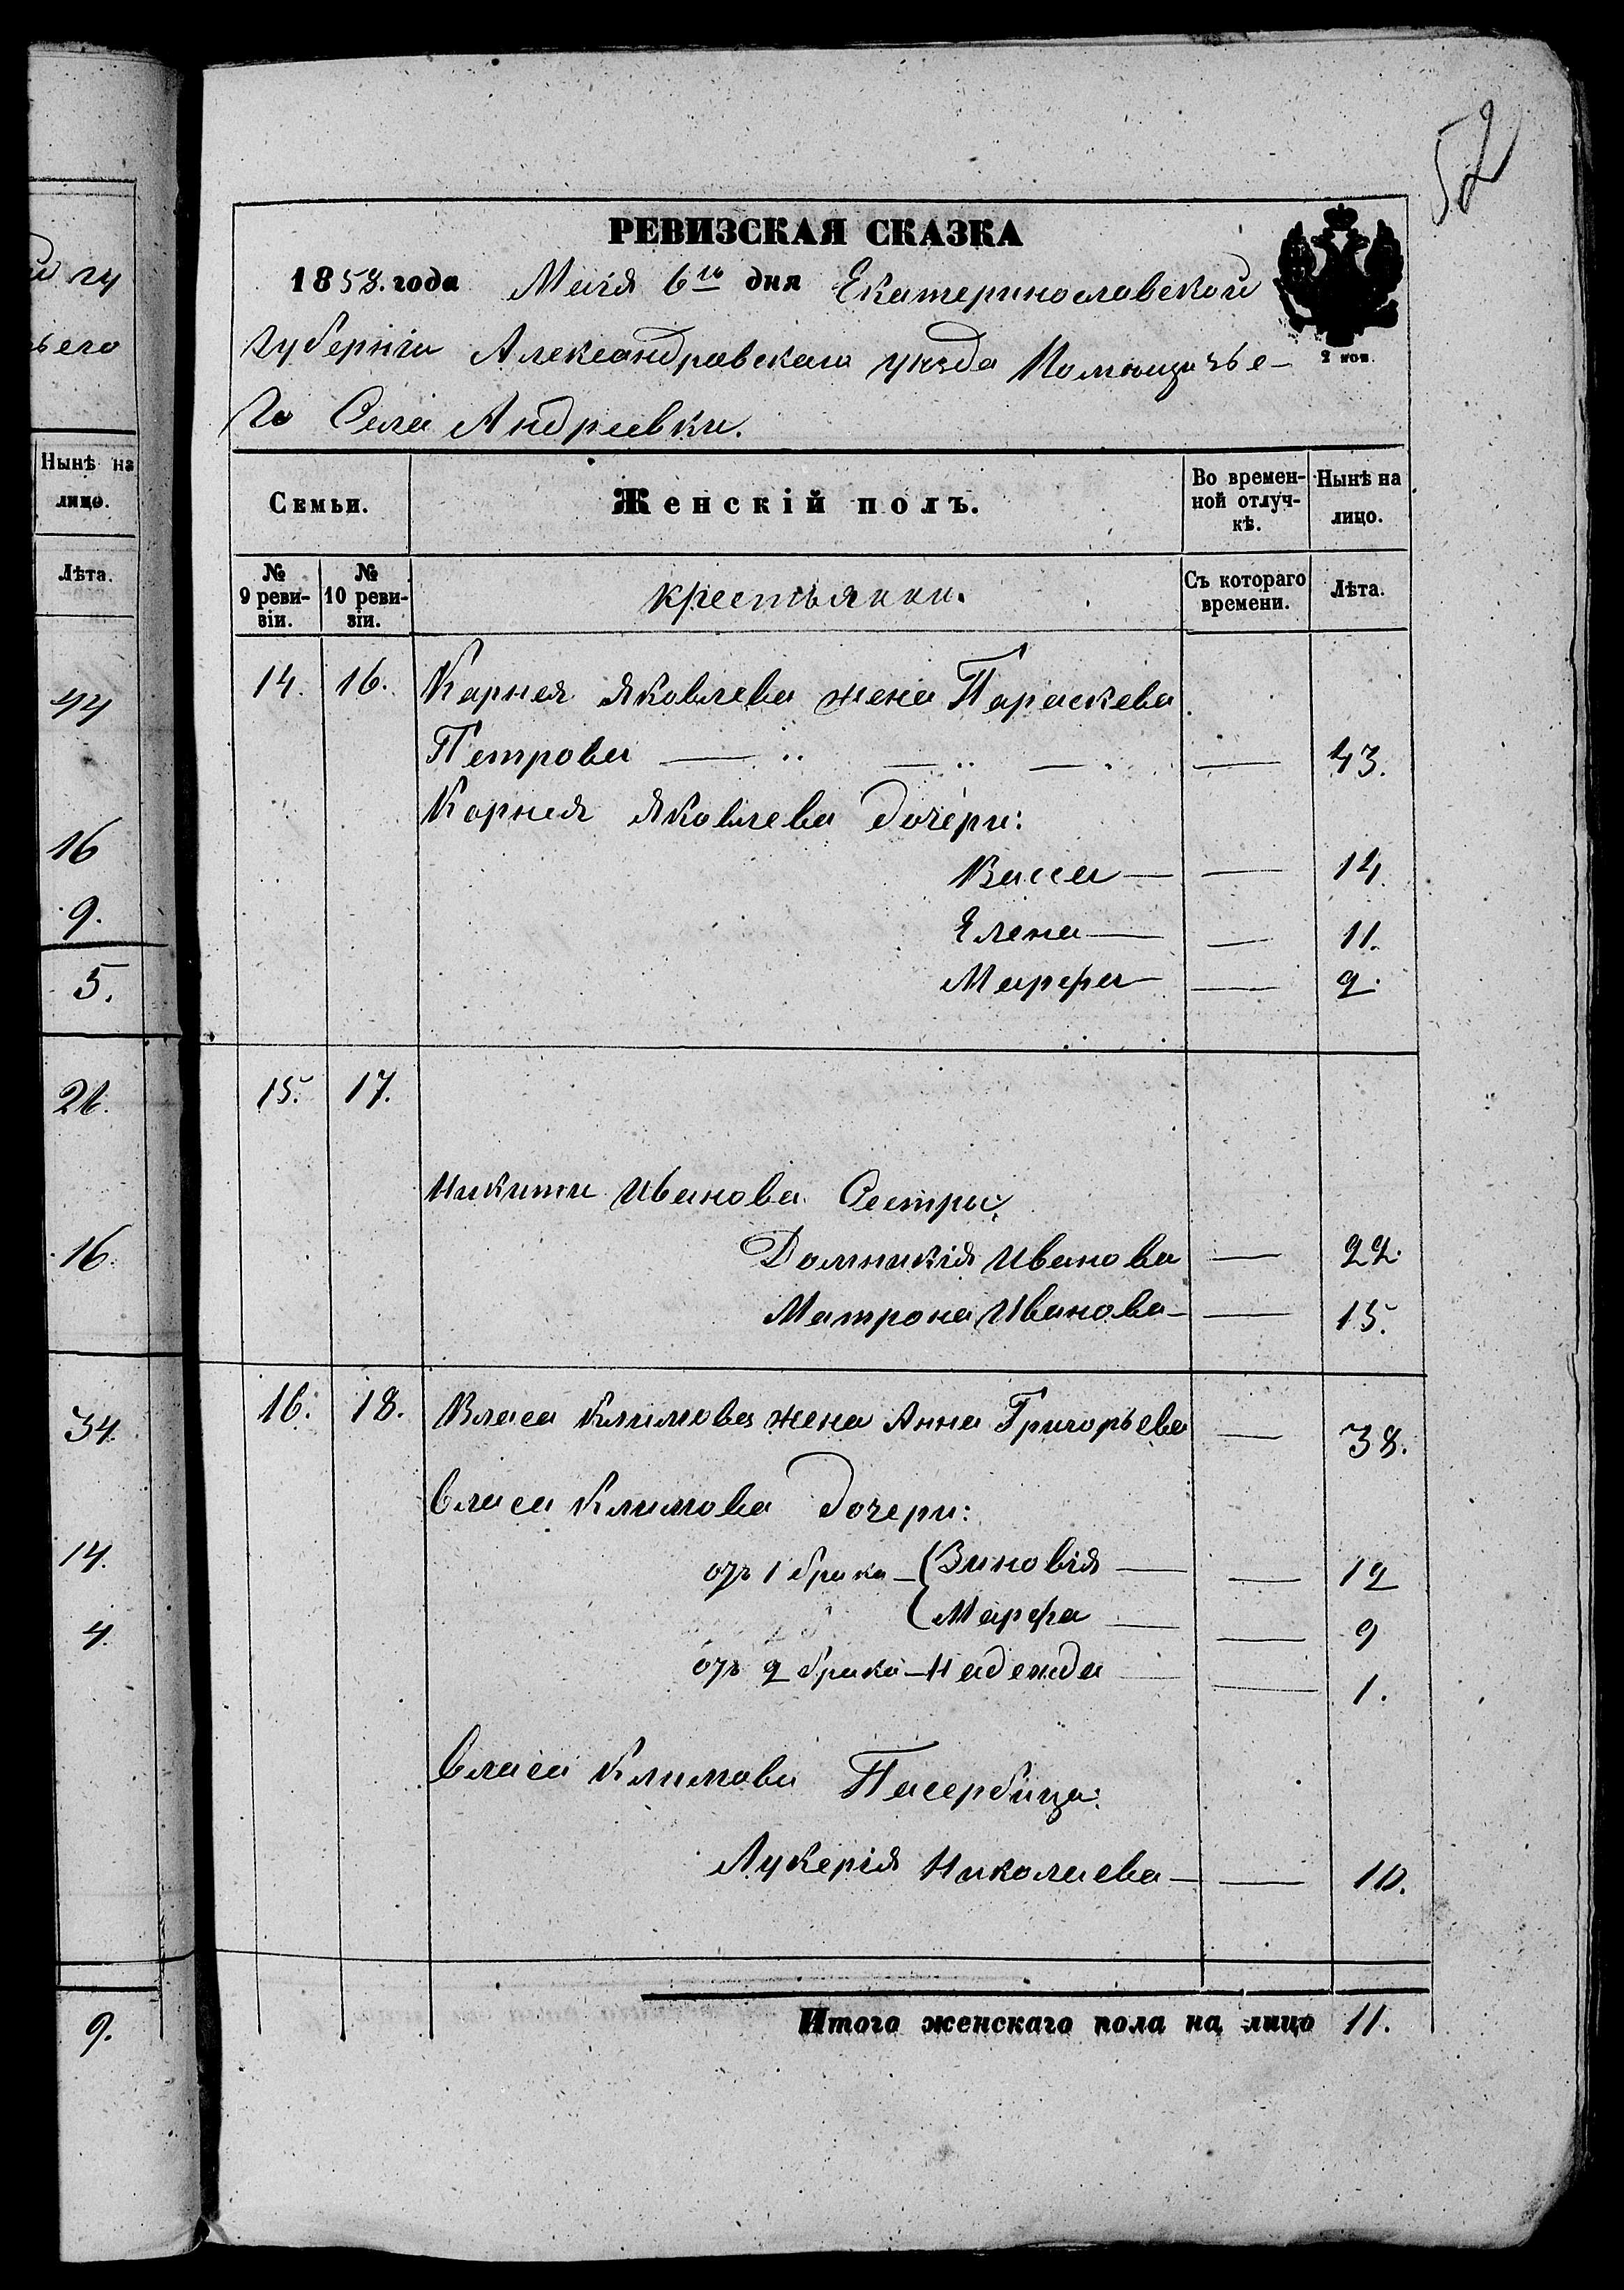 52
РЕВИЗСКАЯ СКАЗКА
1858. года Маія 6го дня Екатеринославской
2 коп.
губерніи Александровскаго уѣзда Помѣщичье-
го Села Андреевки.
Семьи.
Женскій полъ.
Во времен-
ной отлуч-
кѣ.
Нынѣ на
лицо.
№
9 реви-
зіи.
№
10 реви-
зіи.
крестьянки.
Съ котораго
времени.
Лѣта.
14. 16. Карнея Яковлева жена Параскева
Петрова — „ — „ — — 43.
Корнея Яковлева дочери:
Васса — — 14.
Елена — — 11.
Марфа — — 2.
15. 17.
Никиты Иванова Сестры:
Домникія Иванова — 22.
Матрона Иванова — — 15.
16. 18. Власа Климова жена Анна Григорьева — 38.
Власа Климова дочери:
отъ 1 брака — Зиновія — — 12
Марфа — — 9
отъ 2 брака — Надежда — — 1.
Власа Климова Пасербица:
Лукерія Николаева — — 10.
Итого женскаго пола на лицо 11.
гу
ьего
Нынѣ на
лицо.
Лѣта.
44
16
9.
5.
16.
34.
14.
4.
9.